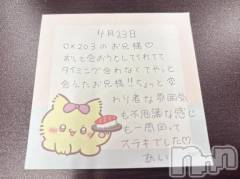 4月23日
0x203のお兄様♡
ずっと会おうとしてくれてて
タイミング合わなくてやっと
会えたお兄様!!ちょっと変
わり者な雰囲気
も不思議な感じ
も一周回って
ステキでした♡
あい